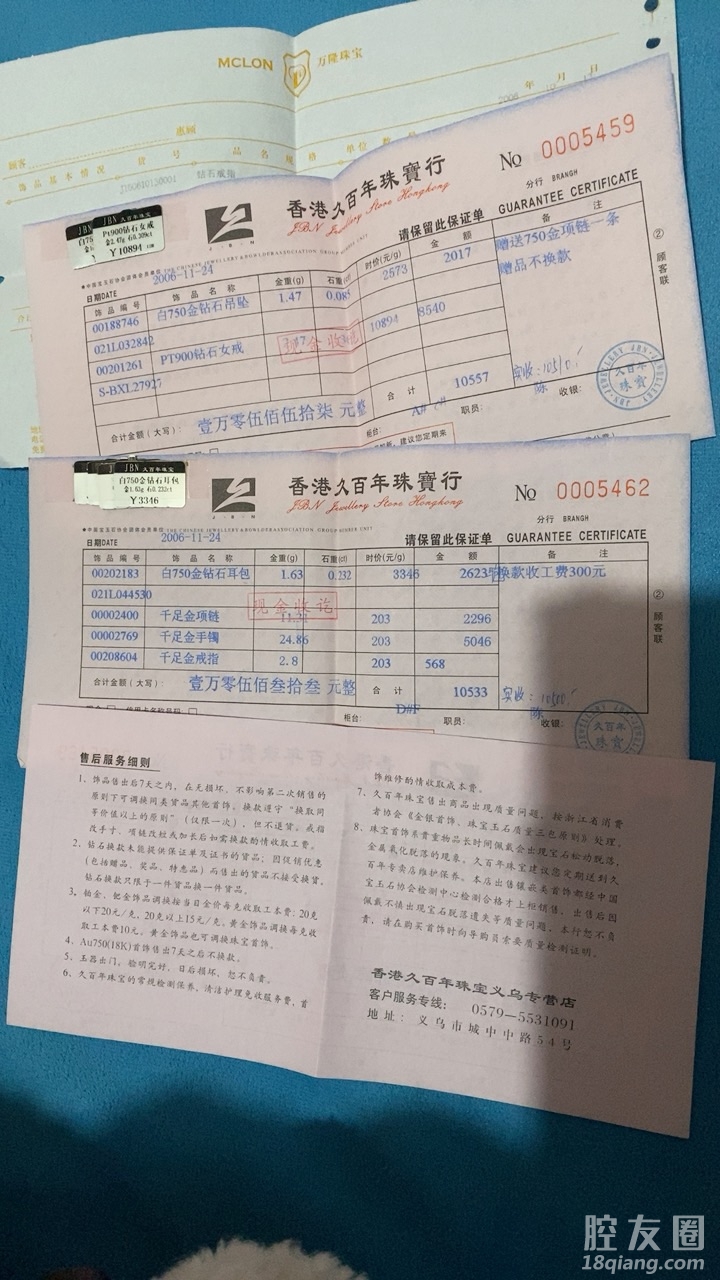 MCLON 万隆珠宝
年 月 日
顾客 惠顾
饰品基本情况 货号 品名 规格 单位 数
J150610130001 钻石戒指
№ 0005459
香港久百年珠寶行
JBN Jewellery Store Hongkong
分行 BRANGH
请保留此保证单 GUARANTEE CERTIFICATE
JBN 久百年珠宝
Pt900钻石女戒
金2.47g 石0.309ct
￥10894
J·B·N
日期DATE 2006-11-24
饰品编号 饰品名称 金重(g) 石重(ct) 时价(元/g) 金额 备注
00188746 白750金钻石吊坠 1.47 0.085 2573 2017 赠送750金项链一条
021L032842 赠品不换款
00201261 PT900钻石女戒 10894 8540
S-BXL27927
现金收讫
合计金额(大写): 壹万零伍佰伍拾柒 元整 合计 10557 实收:10510.
柜台: 职员: 陈 收银:
② 顾客联
久百年
珠寶
JBN 久百年珠宝
白750金钻石耳包
金1.63g 石0.232ct
￥3346
J·B·N
香港久百年珠寶行
JBN Jewellery Store Hongkong
№ 0005462
分行 BRANGH
请保留此保证单 GUARANTEE CERTIFICATE
日期DATE 2006-11-24
饰品编号 饰品名称 金重(g) 石重(ct) 时价(元/g) 金额 备注
00202183 白750金钻石耳包 1.63 0.232 3346 2623 换款收工费300元
021L044530
现金收讫
00002400 千足金项链 203 2296
00002769 千足金手镯 24.86 203 5046
00208604 千足金戒指 2.8 203 568
合计金额(大写): 壹万零伍佰叁拾叁 元整 合计 10533 实收:10500.
柜台: D#F 职员: 陈 收银:
② 顾客联
久百年
珠寶
售后服务细则
1、饰品售出后7天之内，在无损坏、不影响第二次销售的
原则下可调换同类货品其他首饰。换款遵守“换取同
等价值以上的原则”（仅限一次），但不退货。戒指
改手寸、项链改短或加长后如需换款酌情收取工费。
2、钻石换款未能提供保证单及证书的货品；因促销优惠
（包括赠品、奖品、特惠品）而售出的货品不接受换货，
钻石换款只限于一件货品换一件货品。
3、铂金、钯金饰品调换按当日金价每克收取工本费：20克
以下20元/克，20克以上15元/克，黄金饰品调换每克收
取工本费10元。黄金饰品也可调换珠宝首饰。
4、Au750(18K)首饰售出7天之后不换款。
5、玉器出门，验明完好，日后损坏，恕不负责。
6、久百年珠宝的常规检测保养，清洁护理免收服务费，首
饰维修酌情收取成本费。
7、久百年珠宝售出商品出现质量问题，按浙江省消费
者协会《金银首饰、珠宝玉石质量三包原则》处理。
8、珠宝首饰系贵重物品长时间佩戴会出现宝石松动脱落，
金属氧化脱落的现象。久百年珠宝建议您定期送到久
百年专卖店维护保养。本店出售镶嵌类首饰都经中国
宝玉石协会检测中心检测合格才上柜销售，出售后因
佩戴不慎出现宝石脱落遗失等质量问题，本行恕不负
责，请在购买首饰时向导购员索要质量检测证明。
香港久百年珠宝义乌专营店
客户服务专线： 0579-5531091
地址：义乌市城中中路54号
腔友圈
18qiang.com